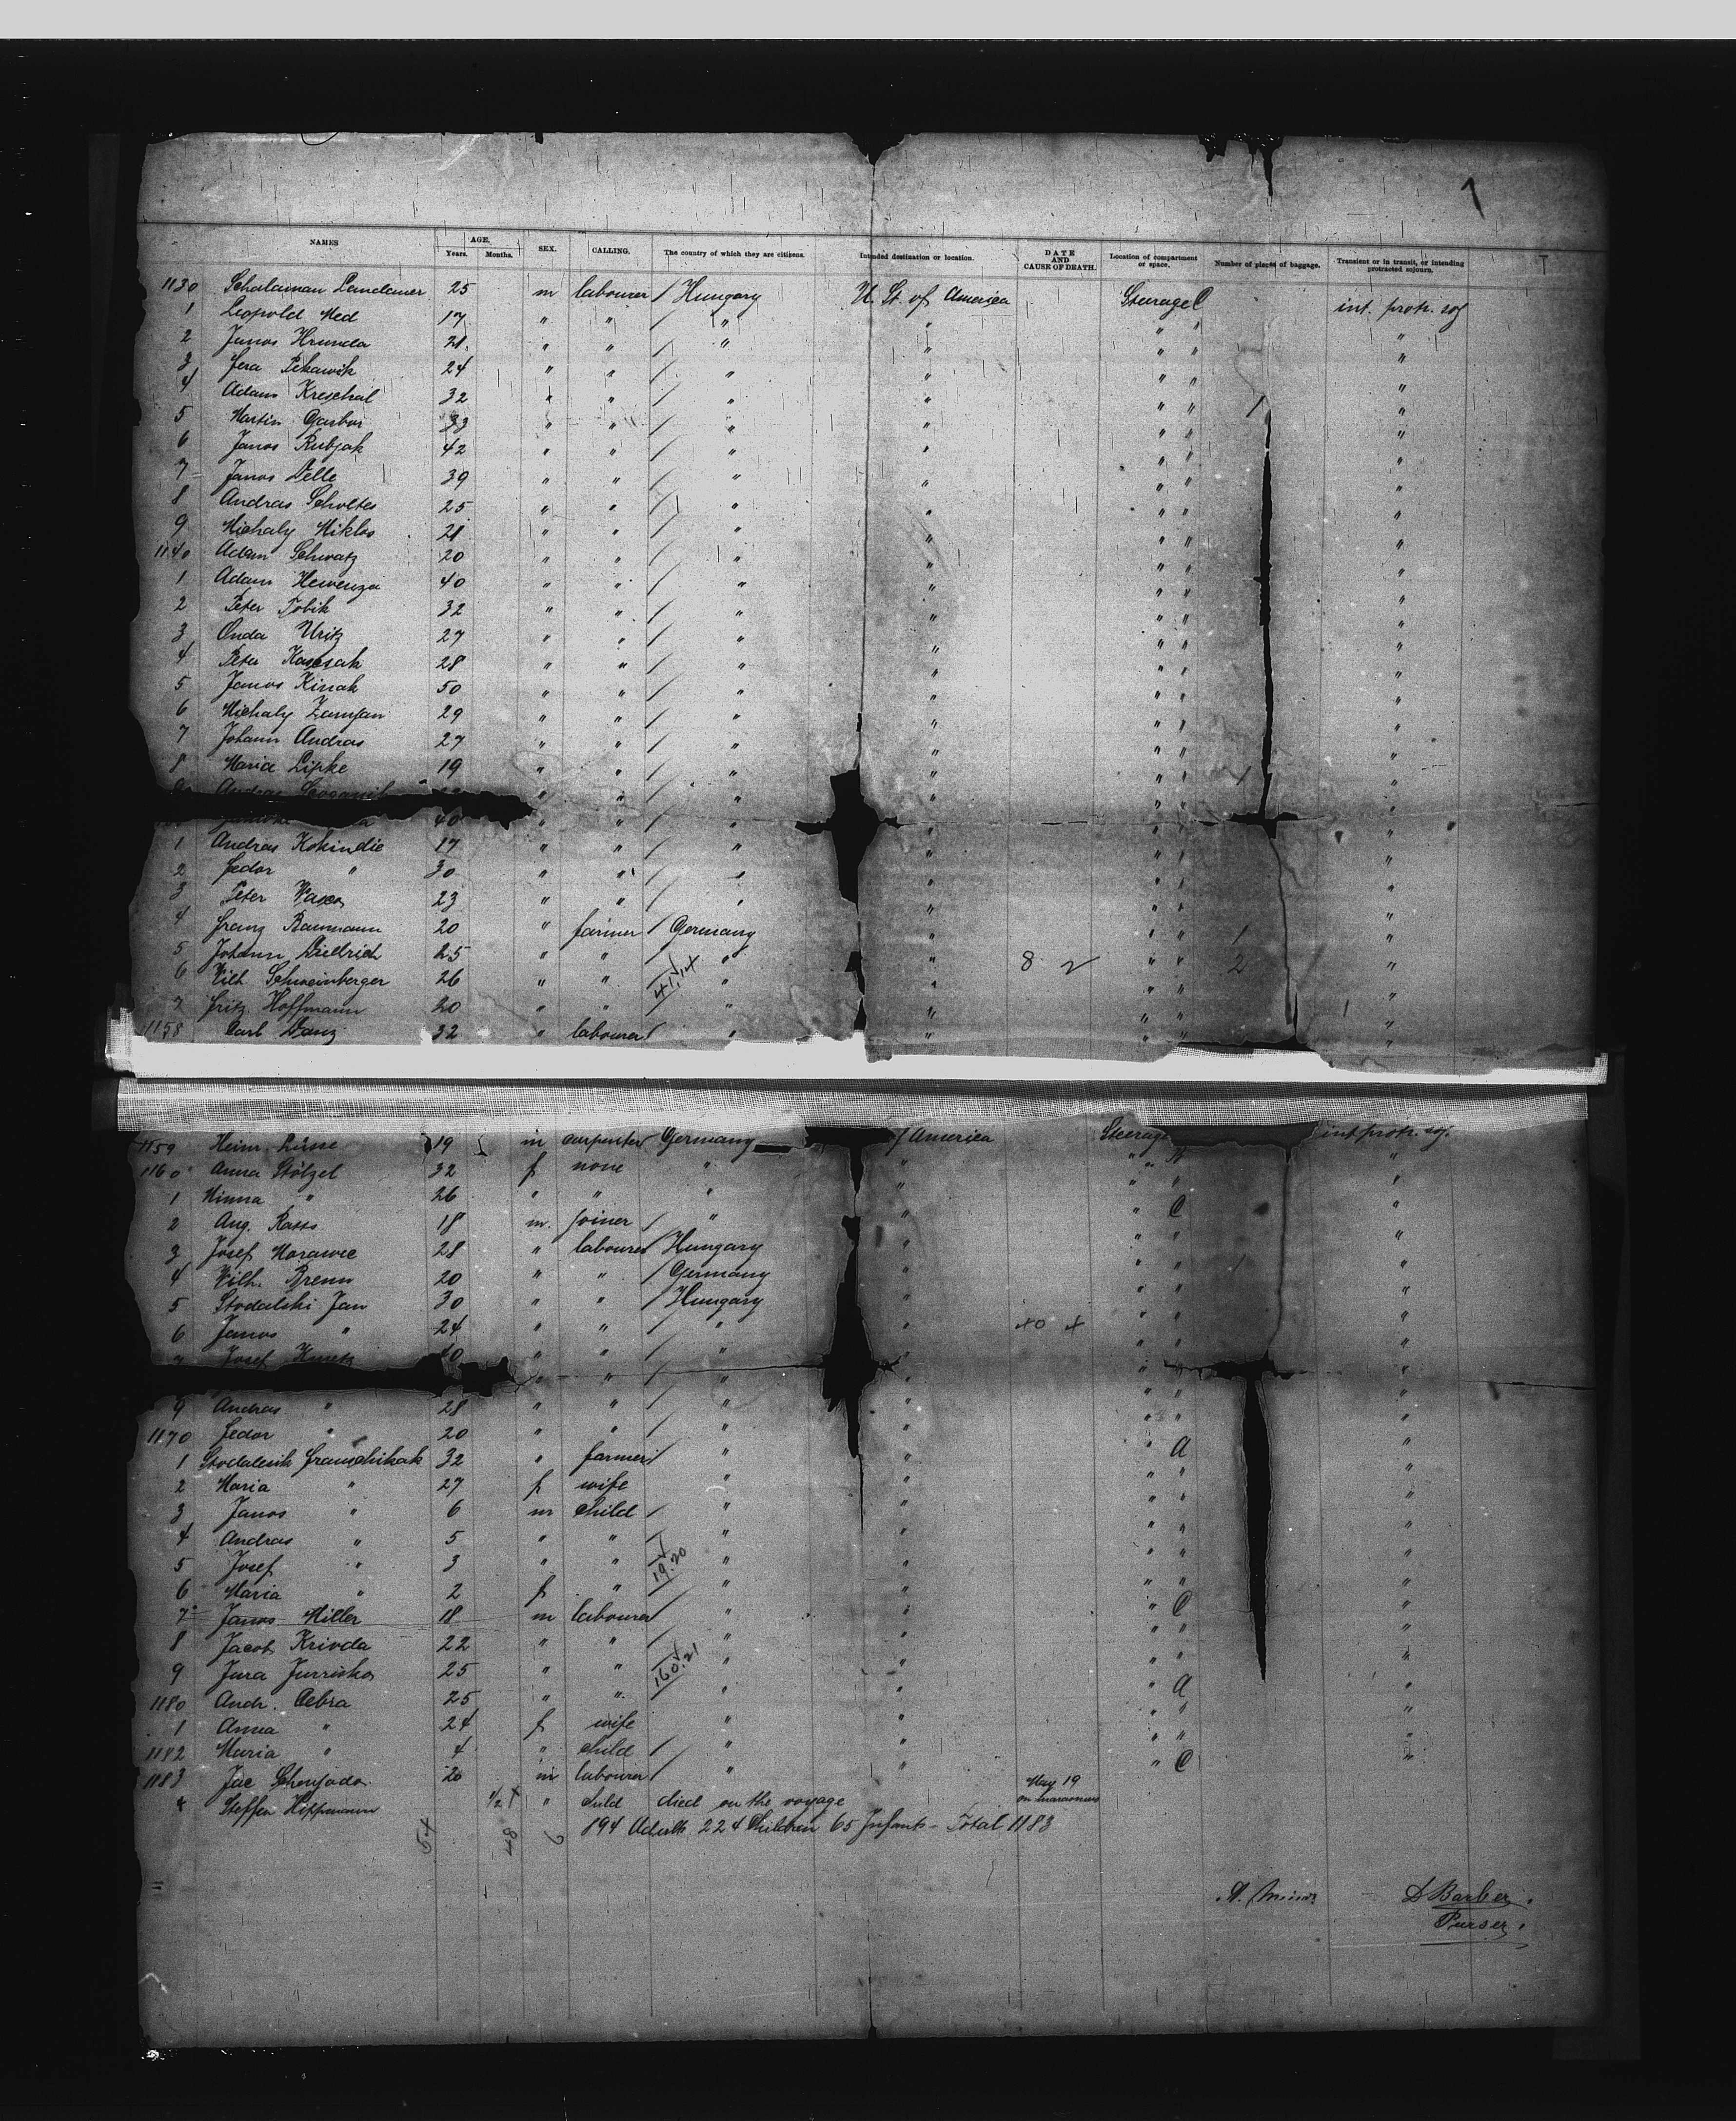 1
NAMES AGE. Years. Months. SEX. CALLING. The country of which they are citizens. Intended destination or location. DATE AND CAUSE OF DEATH. Location of compartment or space. Number of pieces of baggage. Transient or in transit, or intending protracted sojourn.
1130 Schalaman Landauer 25 m labourer / Hungary U. St. of America Steerage C int. protr. soj
1 Leopold Med 17 " " / " " " " "
2 Janos Hrunda 21 " " / " " " " "
3 Jera 24 " " / " " " " "
4 Adam Kreschal 32 " " / " " " " 1 "
5 Martin Garbur 33 " " / " " " " "
6 Janos Rubjak 42 " " / " " " " "
7 Janos Delle 39 " " / " " " " "
8 Andras Scholtes 25 " " / " " " " "
9 Michaly Miklos 21 " " / " " " " "
1140 Adam Schwatz 20 " " / " " " " "
1 Adam Hewenza 40 " " / " " " " "
2 Peter Tobik 32 " " / " " " " "
3 Onda Uritz 27 " " / " " " " "
4 Peter Kascsak 28 " " / " " " " "
5 Janos Kinak 50 " " / " " " " "
6 Michaly Zamjan 29 " " / " " " " "
7 Johann Andras 27 " " / " " " " "
8 Maria Lipke 19 " " / " " " " "
Andras " " / " " " " "
40 " " / " " " " "
1 Andras Kokindie 17 " " / " " " " "
2 Fedor " 30 " " / " " " " "
3 Peter 23 " " / " " " " "
4 Franz Baumann 20 " farmer / Germany " " " 1 "
5 Johann Diedrich 25 " " / " " 8 2 " " 2 "
6 Wilh Schweinberger 26 " " 41.14 " " " " "
7 Fritz Hoffmann 20 " " " " " " 1 "
1158 Carl Danz 32 " labourer / " " " " "
1159 Heinr. Lüsse 19 m carpenter Germany of America Steerage int protr. soj.
1160 Anna Stölzel 32 f none " " " " "
1 Minna " 26 " " " " " " "
2 Aug. Rasss 18 m. joiner / " " " C "
3 Josef Morawec 28 " labourer / Hungary " " " "
4 Wilh. Brenn 20 " " / Germany " " " 1 "
5 Stodalski Jan 30 " " / Hungary " " " "
6 Janos " 24 " " / " " 40 4 " " "
7 Josef 40 " " / " " " " "
" " / " " " " "
9 Andras " 28 " " / " " " " "
1170 Fedor " 20 " " / " " " " "
1 32 " farmer / " " " A "
2 Maria " 27 f wife " " " " "
3 Janos " 6 m child / " " " " "
4 Andras " 5 " " / " " " " "
5 Josef " 3 " " 19.20 " " " " "
6 Maria " 2 f " / " " " " "
7 Janos Miller 18 m labourer / " " " C "
8 Jacob Krivda 22 " " / " " " " "
9 Jura Jurrisko 25 " " 160.21 " " " " "
1180 Andr. Cebra 25 " " / " " " A "
1 Anna " 24 f wife " " " " "
1182 Maria " 4 " child / " " " " "
1183 Jac 20 m labourer / " " C "
Steffen Hippmann 1/2 " child died on the voyage May 19
894 Adults 224 Children 65 Infants - Total 1183
54 48 6
D Barber.
Purser.